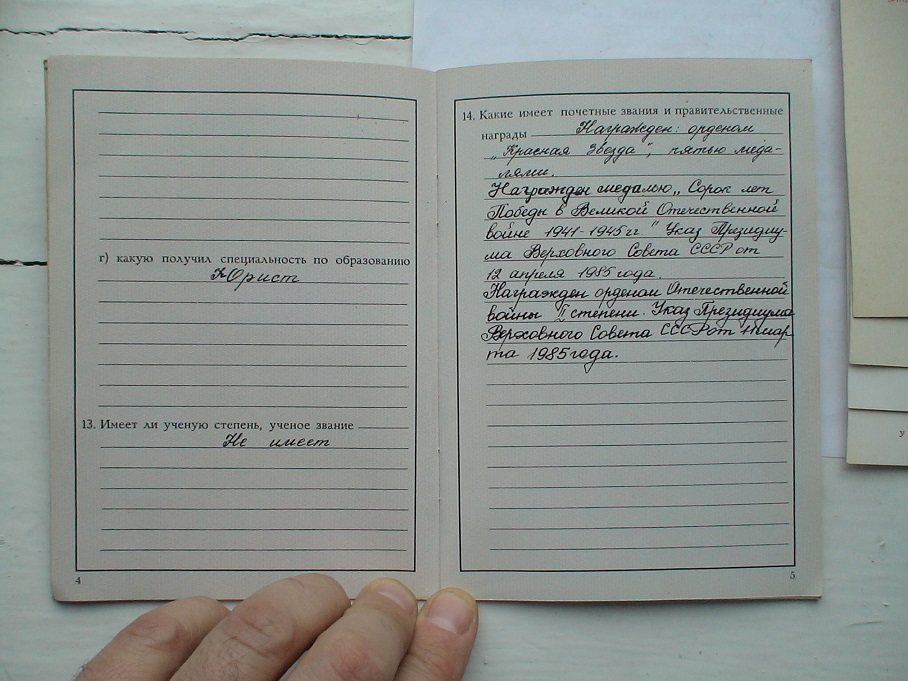 г) какую получил специальность по образованию
Юрист
13. Имеет ли ученую степень, ученое звание
Не имеет
4
14. Какие имеет почетные звания и правительственные
награды Награжден: орденом
„Красная Звезда", пятью меда-
лями.
Награжден медалью „Сорок лет
Победы в Великой Отечественной
войне 1941-1945 гг." Указ Президиу-
ма Верховного Совета СССР от
12 апреля 1985 года.
Награжден орденом Отечественной
войны II степени. Указ Президиума
Верховного Совета СССР от 11 мар
та 1985 года.
5
У